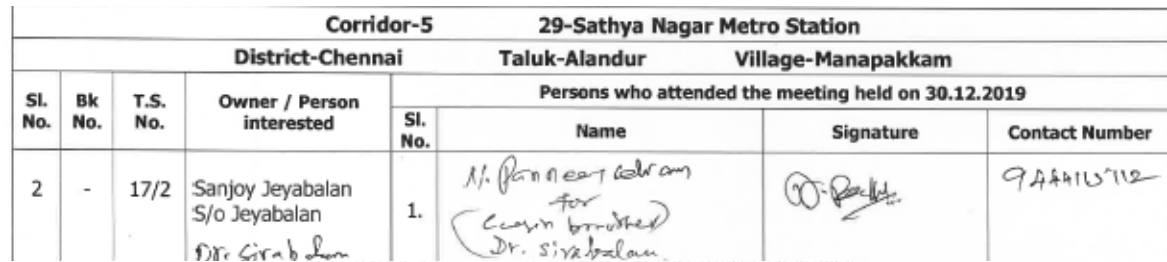 Corridor-5 29-Sathya Nagar Metro Station
District-Chennai Taluk-Alandur Village-Manapakkam
Sl. No. Bk No. T.S. No. Owner / Person interested Persons who attended the meeting held on 30.12.2019
Sl. No. Name Signature Contact Number
2 - 17/2 Sanjoy Jeyabalan
S/o Jeyabalan
Dr. Sivabalan
1.
for
Dr. Sivabalan